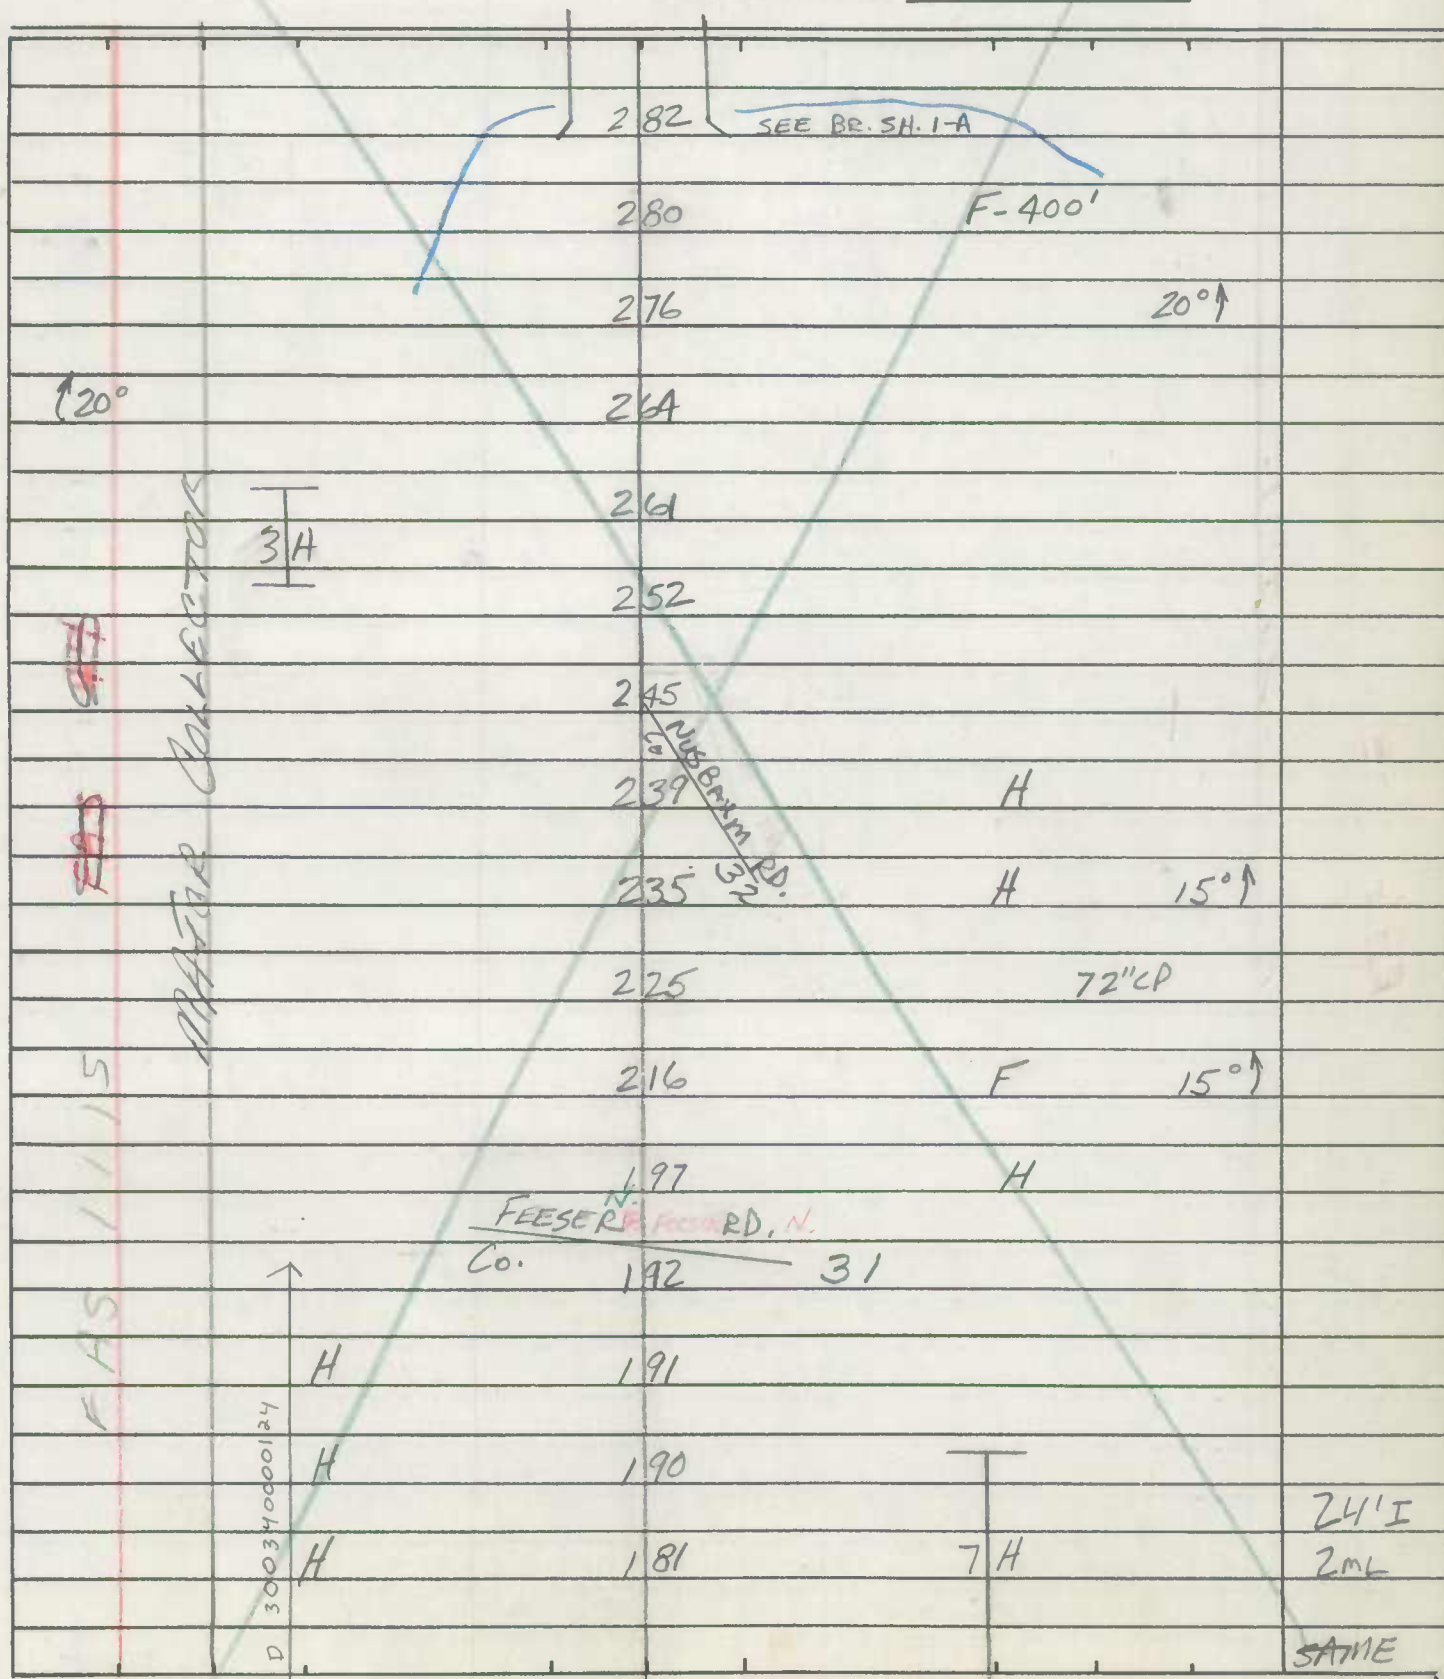 282 SEE BR. SH. 1-A
280 F-400'
276 20°↑
↑20° 264
261
3 H
252
245
Co. NUSBAUM RD. 32
239 H
235 H 15°↑
225 72"CP
216 F 15°↑
197 H
FEESER RD. N.
Co. 31
192
H 191
H 190
24' I
H 181 7 H 2ML
SAME
MAJOR COLLECTOR
FAS 1115
D 300340000124